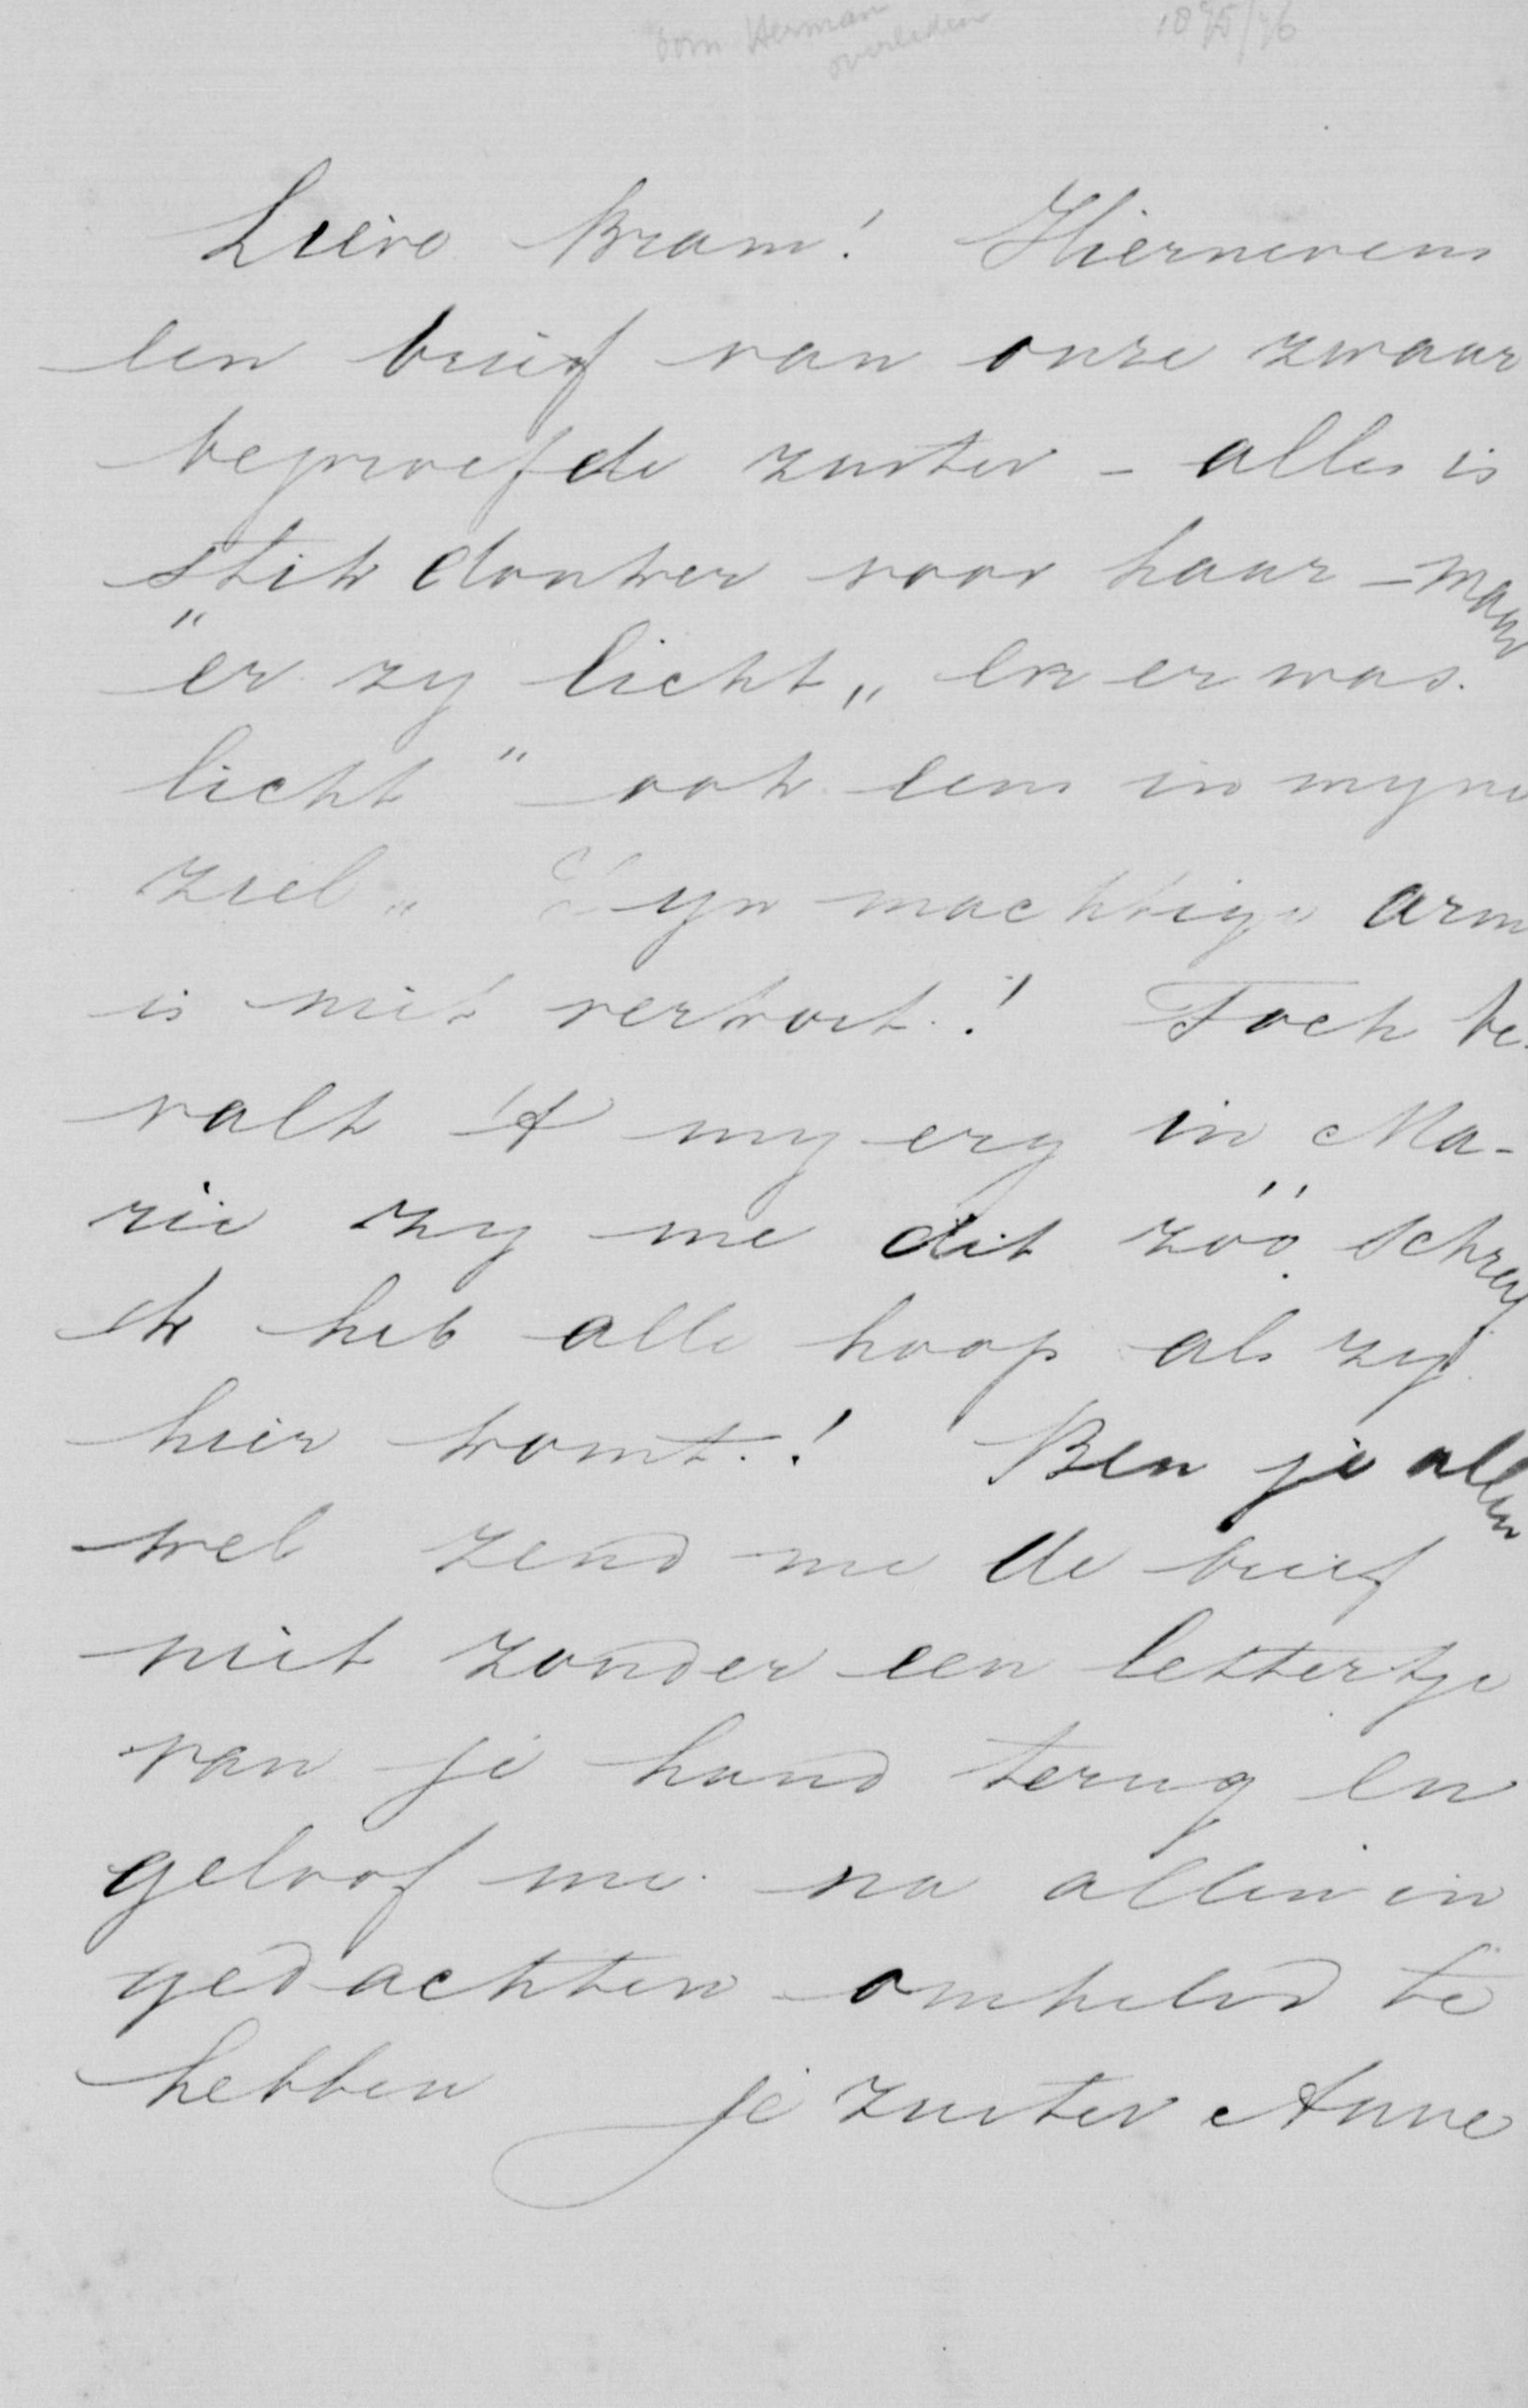 oom Herman 1895/96
overleden
Lieve Bram! Hiernevens
een brief van onze zwaar
beproefde zuster - alles is
stik donker voor haar - maar
"er zy licht" en er was
licht" ook eens in myne
ziel" Zyn machtige arm
is niet verkort! Toch be-
valt 't my erg in Ma-
rie zy me dit zóó schreef
ik heb alle hoop als zy
hier komt! Ben je allen
wel zend me de brief
niet zonder een lettertje
van je hand terug en
geloof me na allen in
gedachten omhelsd te
hebben je zuster Anne